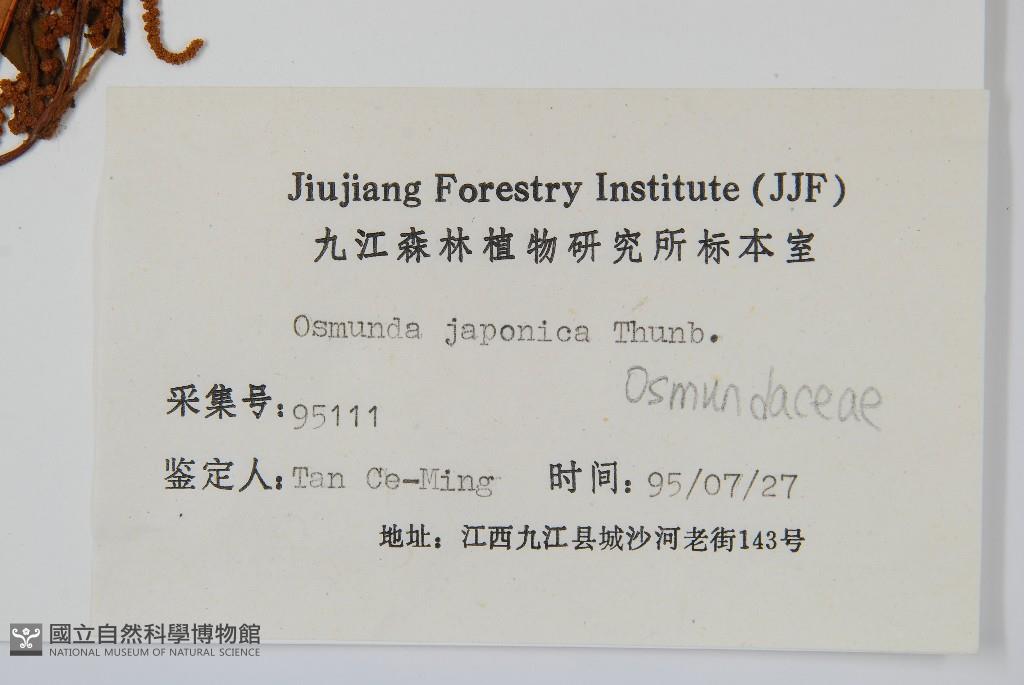 Jiujiang Forestry Institute (JJF)
九江森林植物研究所标本室
Osmunda japonica Thunb.
Osmundaceae
采集号: 95111
鉴定人: Tan Ce-Ming 时间: 95/07/27
地址: 江西九江县城沙河老街143号
國立自然科學博物館
NATIONAL MUSEUM OF NATURAL SCIENCE